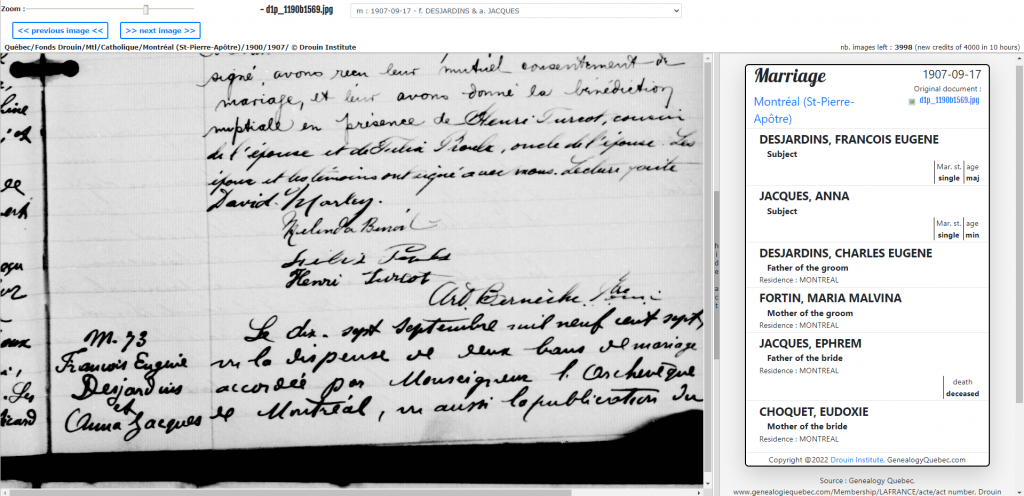 Zoom :
- d1p_1190b1569.jpg
m : 1907-09-17 - f. DESJARDINS & a. JACQUES
<< previous image <<
>> next image >>
Québec/Fonds Drouin/Mtl/Catholique/Montréal (St-Pierre-Apôtre)/1900/1907/ © Drouin Institute
nb. images left : 3998 (new credits of 4000 in 10 hours)
signé, avons reçu leur mutuel consentement de
mariage, et leur avons donné la bénédiction
nuptiale en présence de Henri Turcot, cousin
de l'épouse et de Félix Proulx, oncle de l'épouse. Les
époux et les témoins ont signé avec nous. Lecture faite
David Morley.
Melinda Benoit
Félix Proulx
Henri Turcot
M. 73
François Eugène
Desjardins
et
Anna Jacques
Le dix-sept Septembre mil neuf cent sept,
vu la dispense de deux bans de mariage
accordée par Monseigneur l'Archevêque
de Montréal, vu aussi la publication du
hide act
Marriage
1907-09-17
Original document :
d1p_1190b1569.jpg
Montréal (St-Pierre-
Apôtre)
DESJARDINS, FRANCOIS EUGENE
Subject
Mar. st. age
single maj
JACQUES, ANNA
Subject
Mar. st. age
single min
DESJARDINS, CHARLES EUGENE
Father of the groom
Residence : MONTREAL
FORTIN, MARIA MALVINA
Mother of the groom
Residence : MONTREAL
JACQUES, EPHREM
Father of the bride
Residence : MONTREAL
death
deceased
CHOQUET, EUDOXIE
Mother of the bride
Residence : MONTREAL
Copyright @2022 Drouin Institute, GenealogyQuebec.com
Source : Genealogy Quebec.
www.genealogiequebec.com/Membership/LAFRANCE/acte/act number, Drouin